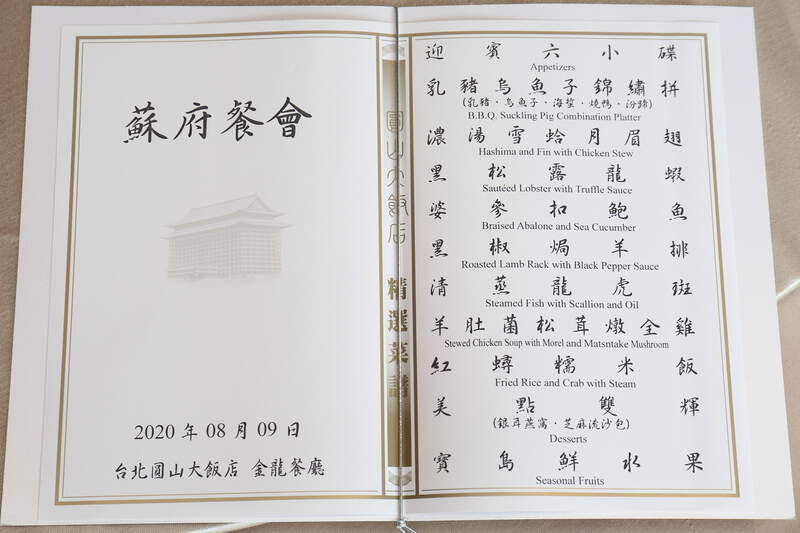 蘇府餐會
2020 年 08 月 09 日
台北圓山大飯店 金龍餐廳
圓山大飯店
精選菜譜
迎賓六小碟
Appetizers
乳豬烏魚子錦繡拼
(乳豬‧烏魚子‧海蜇‧燒鴨‧汾蹄)
B.B.Q. Suckling Pig Combination Platter
濃湯雪蛤月眉翅
Hashima and Fin with Chicken Stew
黑松露龍蝦
Sautéed Lobster with Truffle Sauce
婆參扣鮑魚
Braised Abalone and Sea Cucumber
黑椒焗羊排
Roasted Lamb Rack with Black Pepper Sauce
清蒸龍虎斑
Steamed Fish with Scallion and Oil
羊肚菌松茸燉全雞
Stewed Chicken Soup with Morel and Matsntake Mushroom
紅蟳糯米飯
Fried Rice and Crab with Steam
美點雙輝
(銀耳燕窩‧芝麻流沙包)
Desserts
寶島鮮水果
Seasonal Fruits